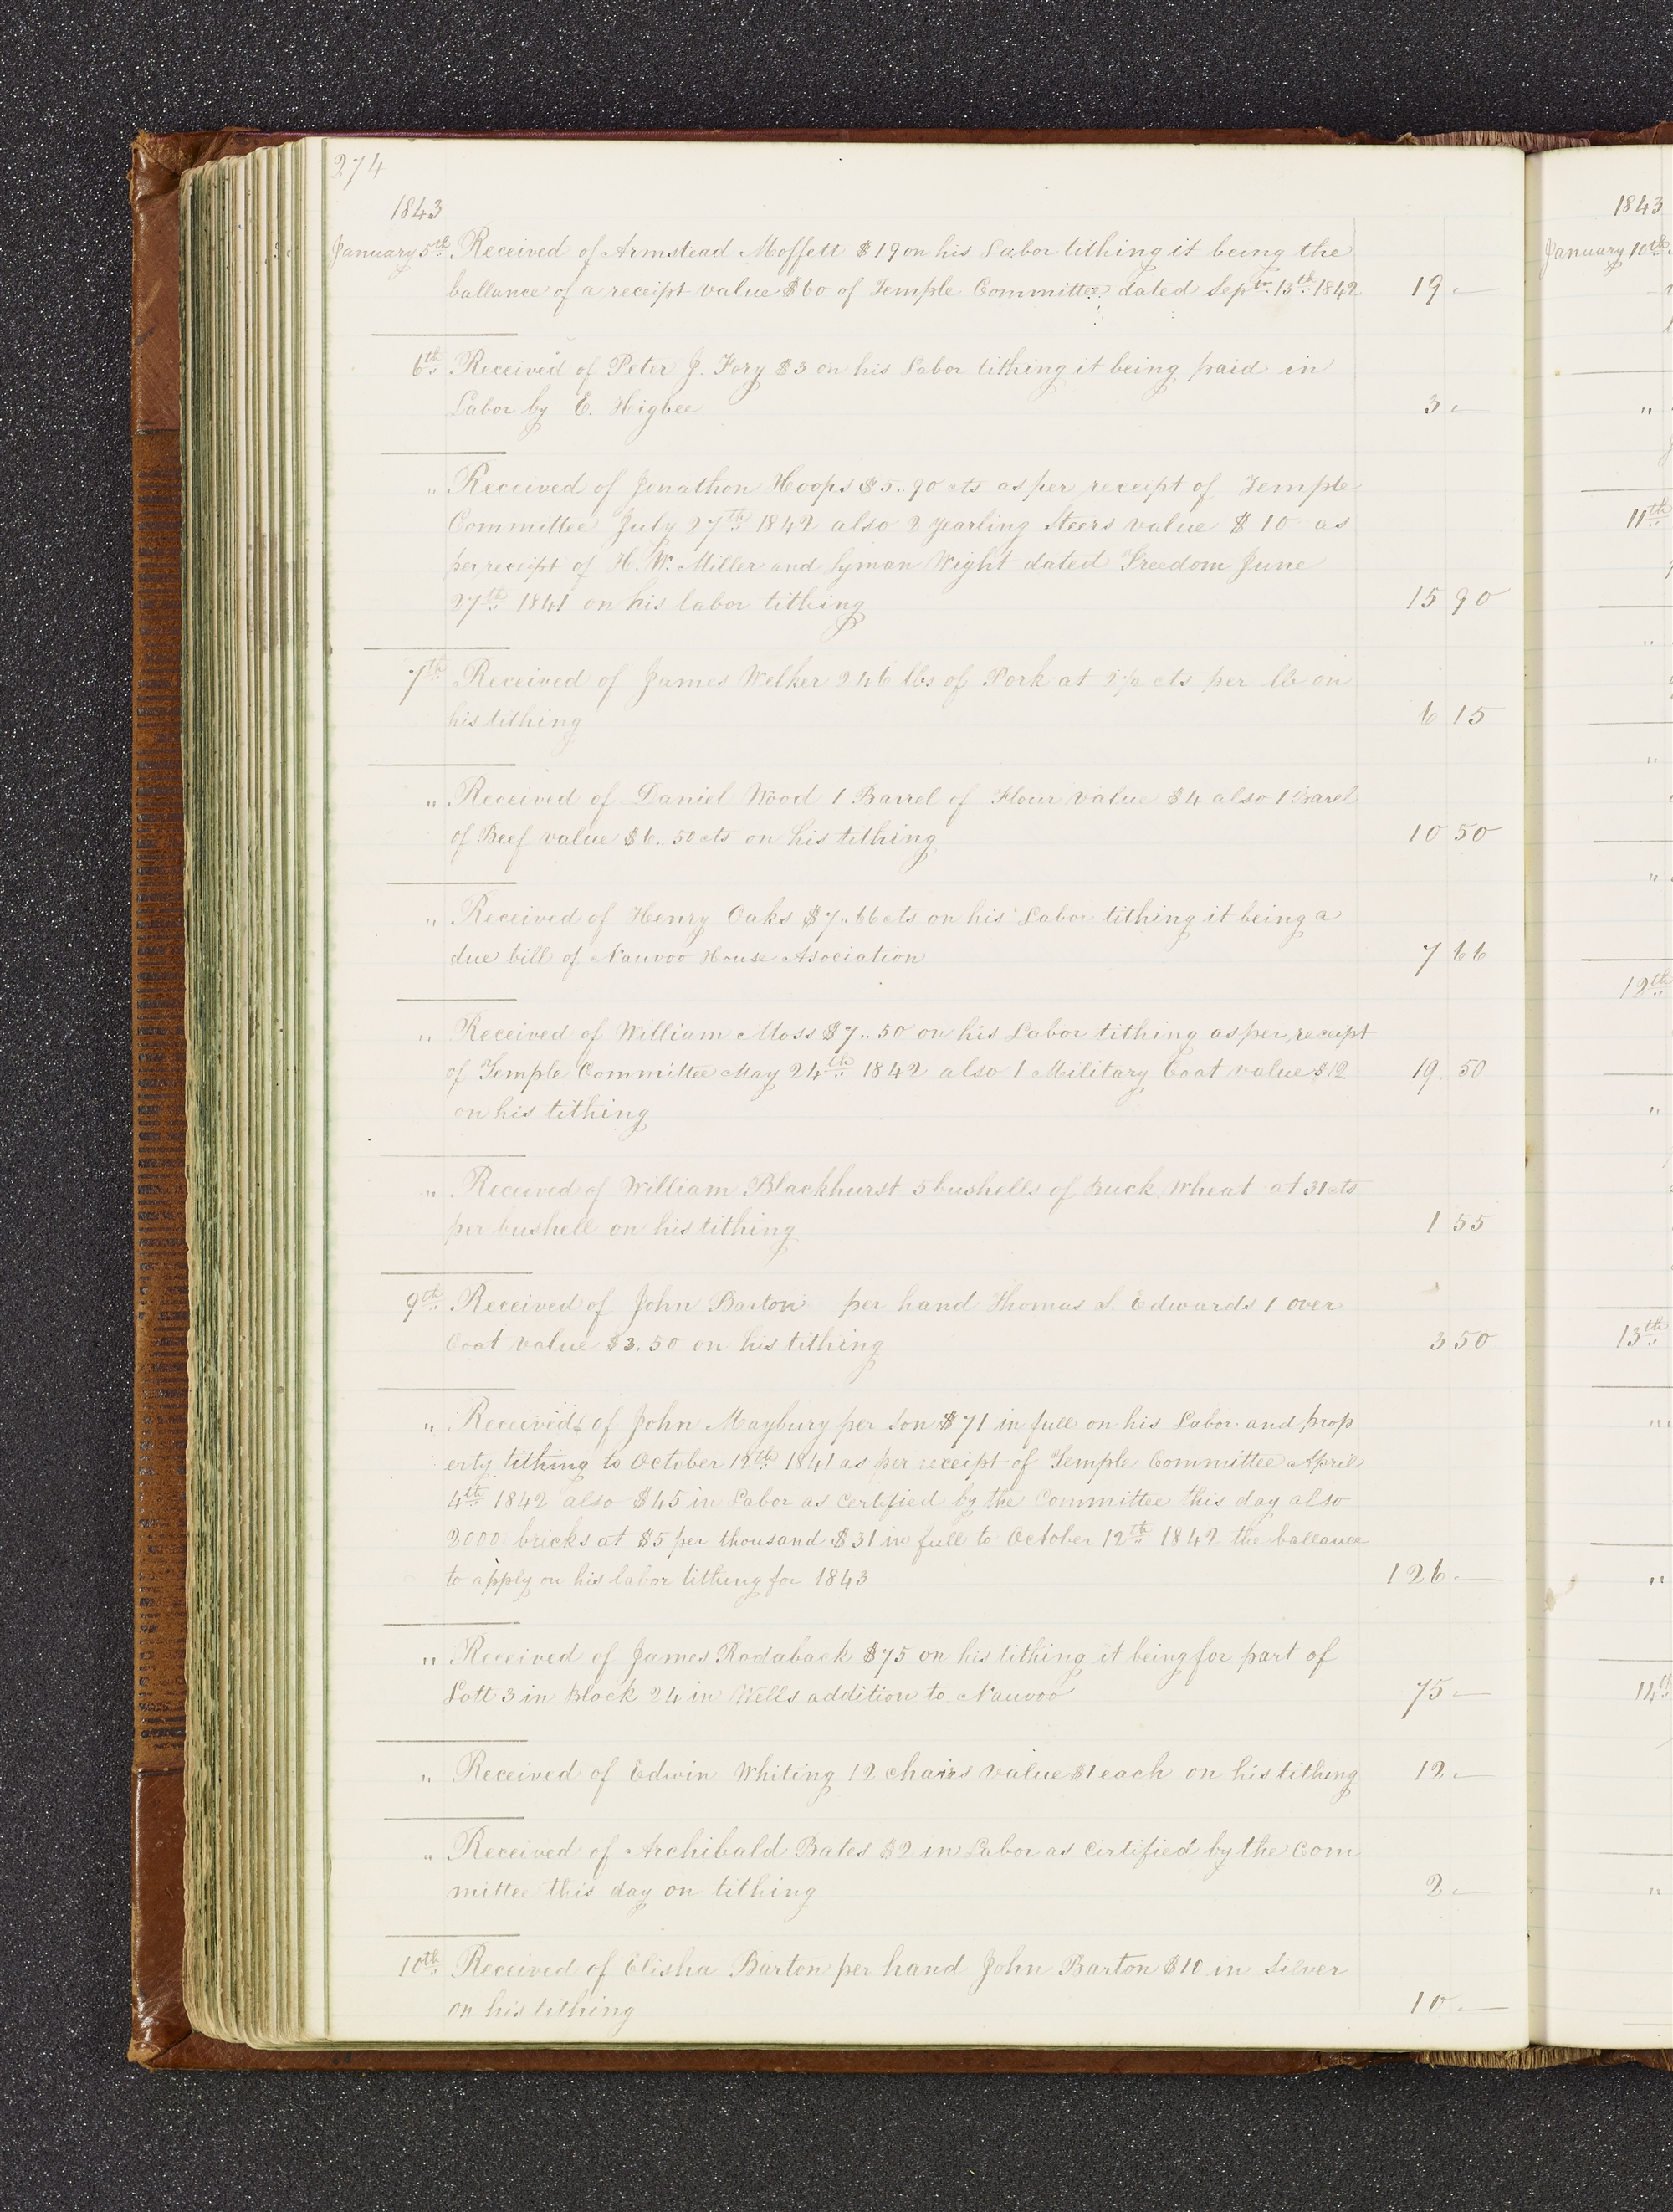 274
1843
January 5th Received of Armstead Moffett $19 on his Labor tithing it being the
ballance of a receipt value $60 of Temple Committee dated Septr. 13th 1842 19 -
6th Received of Peter J. Fory $3 on his Labor tithing it being paid in
Labor by E. Higbee 3 -
" Received of Jonathon Hoops $5..90 cts as per receipt of Temple
Committee July 27th 1842 also 2 yearling Steers value $10 as
per receipt of H. W. Miller and Lyman Wight dated Freedom June
27th 1841 on his labor tithing 15 90
7th Received of James Welker 246 lbs of Pork at 2½ cts per lb on
his tithing 6 15
" Received of Daniel Wood 1 Barrel of Flour value $4 also 1 Barel
of Beef value $6..50 cts on his tithing 10 50
" Received of Henry Oaks $7..66 cts on his Labor tithing it being a
due bill of Nauvoo House Asociation 7 66
" Received of William Moss $7..50 on his Labor tithing as per receipt
of Temple Committee May 24th 1842 also 1 Military Coat value $12. 19 50
on his tithing
" Received of William Blackhurst 5 bushells of Buck Wheat at 31 cts
per bushell on his tithing 1 55
9th Received of John Barton per hand Thomas S. Edwards 1 over
Coat value $3.50 on his tithing 3 50
" Received of John Maybury per Son $71 in full on his Labor and prop
erty tithing to October 12th 1841 as per receipt of Temple Committee April
4th 1842 also $45 in Labor as Certified by the Committee this day also
2000 bricks at $5 per thousand $31 in full to October 12th 1842 the ballance
to apply on his labor tithing for 1843 126 -
" Received of James Rodaback $75 on his tithing it being for part of
Lott 3 in Block 24 in Wells addition to Nauvoo 75 -
" Received of Edwin Whiting 12 chairs value $1 each on his tithing 12 -
" Received of Archibald Bates $2 in Labor as Certified by the Com
mittee this day on tithing 2 -
10th Received of Elisha Barton per hand John Barton $10 in Silver
on his tithing 10 -
1843
January 10th
"
11th
"
"
"
12th
"
13th
"
"
14th
"